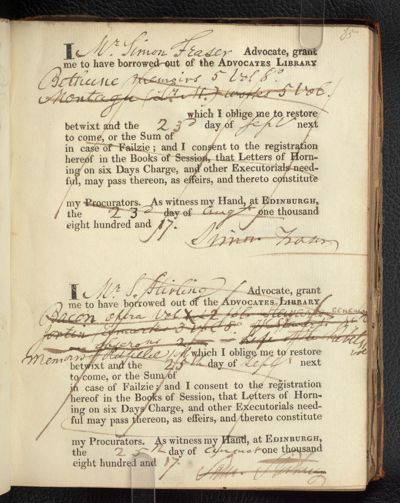 85
I Mr. Simon Fraser Advocate, grant
me to have borrowed out of the ADVOCATES LIBRARY
Bethune memoirs 5 vol 8o.
Montagu (Ly. M.) works 5 vol.
which I oblige me to restore
betwixt and the 23d day of Sept next
to come, or the Sum of
in case of Failzie; and I consent to the registration
hereof in the Books of Session, that Letters of Horn-
ing on six Days Charge, and other Executorials need-
ful, may pass thereon, as effeirs, and thereto constitute
my Procurators. As witness my Hand, at EDINBURGH,
the 23d day of Augt one thousand
eight hundred and 17.
Simon Fraser
I Mr. S. Stirling Advocate, grant
me to have borrowed out of the ADVOCATES LIBRARY
Bacon opera vol
Memoirs
which I oblige me to restore
betwixt and the 25th day of Sept next
to come, or the Sum of
in case of Failzie; and I consent to the registration
hereof in the Books of Session, that Letters of Horn-
ing on six Days Charge, and other Executorials need-
ful may pass thereon, as effeirs, and thereto constitute
my Procurators. As witness my Hand, at EDINBURGH,
the 25th day of August one thousand
eight hundred and 17.